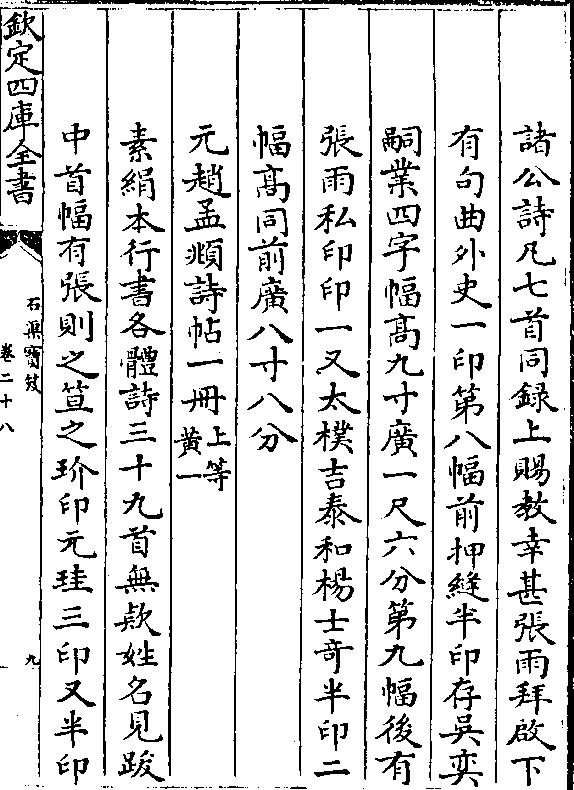 諸公詩凡七首同録上賜教幸甚張雨拜啟下
有句曲外史一印第八幅前押縫半印存吳奕
嗣業四字幅髙九寸廣一尺六分第九幅後有
張雨私印印一又太樸吉泰和楊士竒半印二
幅髙同前廣八寸八分
元趙孟頫詩帖一冊上等黃一
素絹本行書各體詩三十九首無款姓名見跋
中首幅有張則之笪之玠印元珪三印又半印
欽定四庫全書
石渠寶笈
卷二十八
九